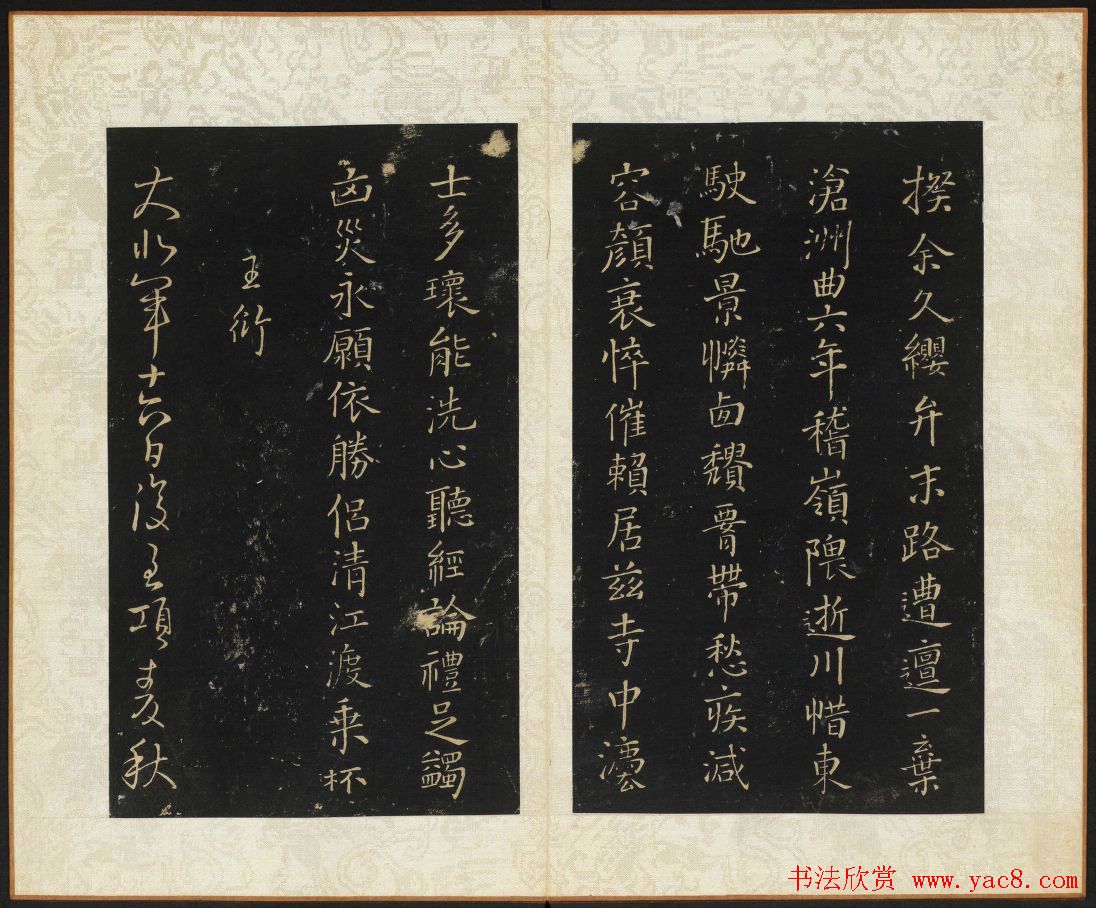 揆余久纓弁末路遭邅一棄
滄洲曲六年稽嶺隈逝川惜東
駛馳景憐卥穨帶愁疾減
容顏衰悴催賴居茲寺中灋
士多瓌能洗心聽經論禮足蠲
災永願依勝侶清江渡乘杯
王衍
大水軍十六日後至項麦秋
书法欣赏 www.yac8.com